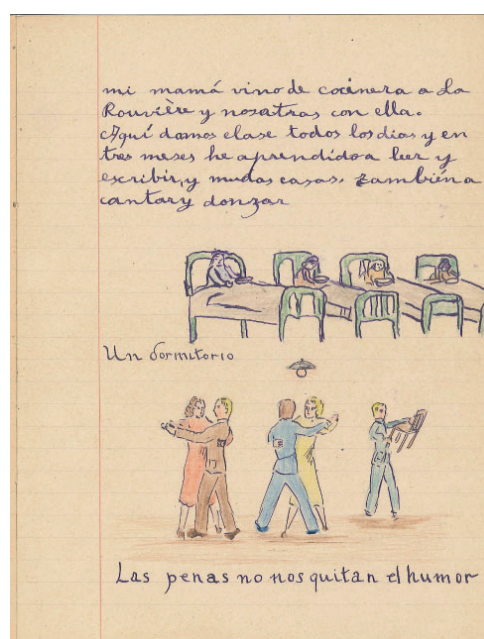 mi mamá vino de cocinera a La
Rouvière y nosatras con ella.
Aquí damos clase todos los dias y en
tres meses he aprendido a leer y
escribir, y muchas casas. también a
cantar y donzar
Un dormitorio
Las penas no nos quitan el humor